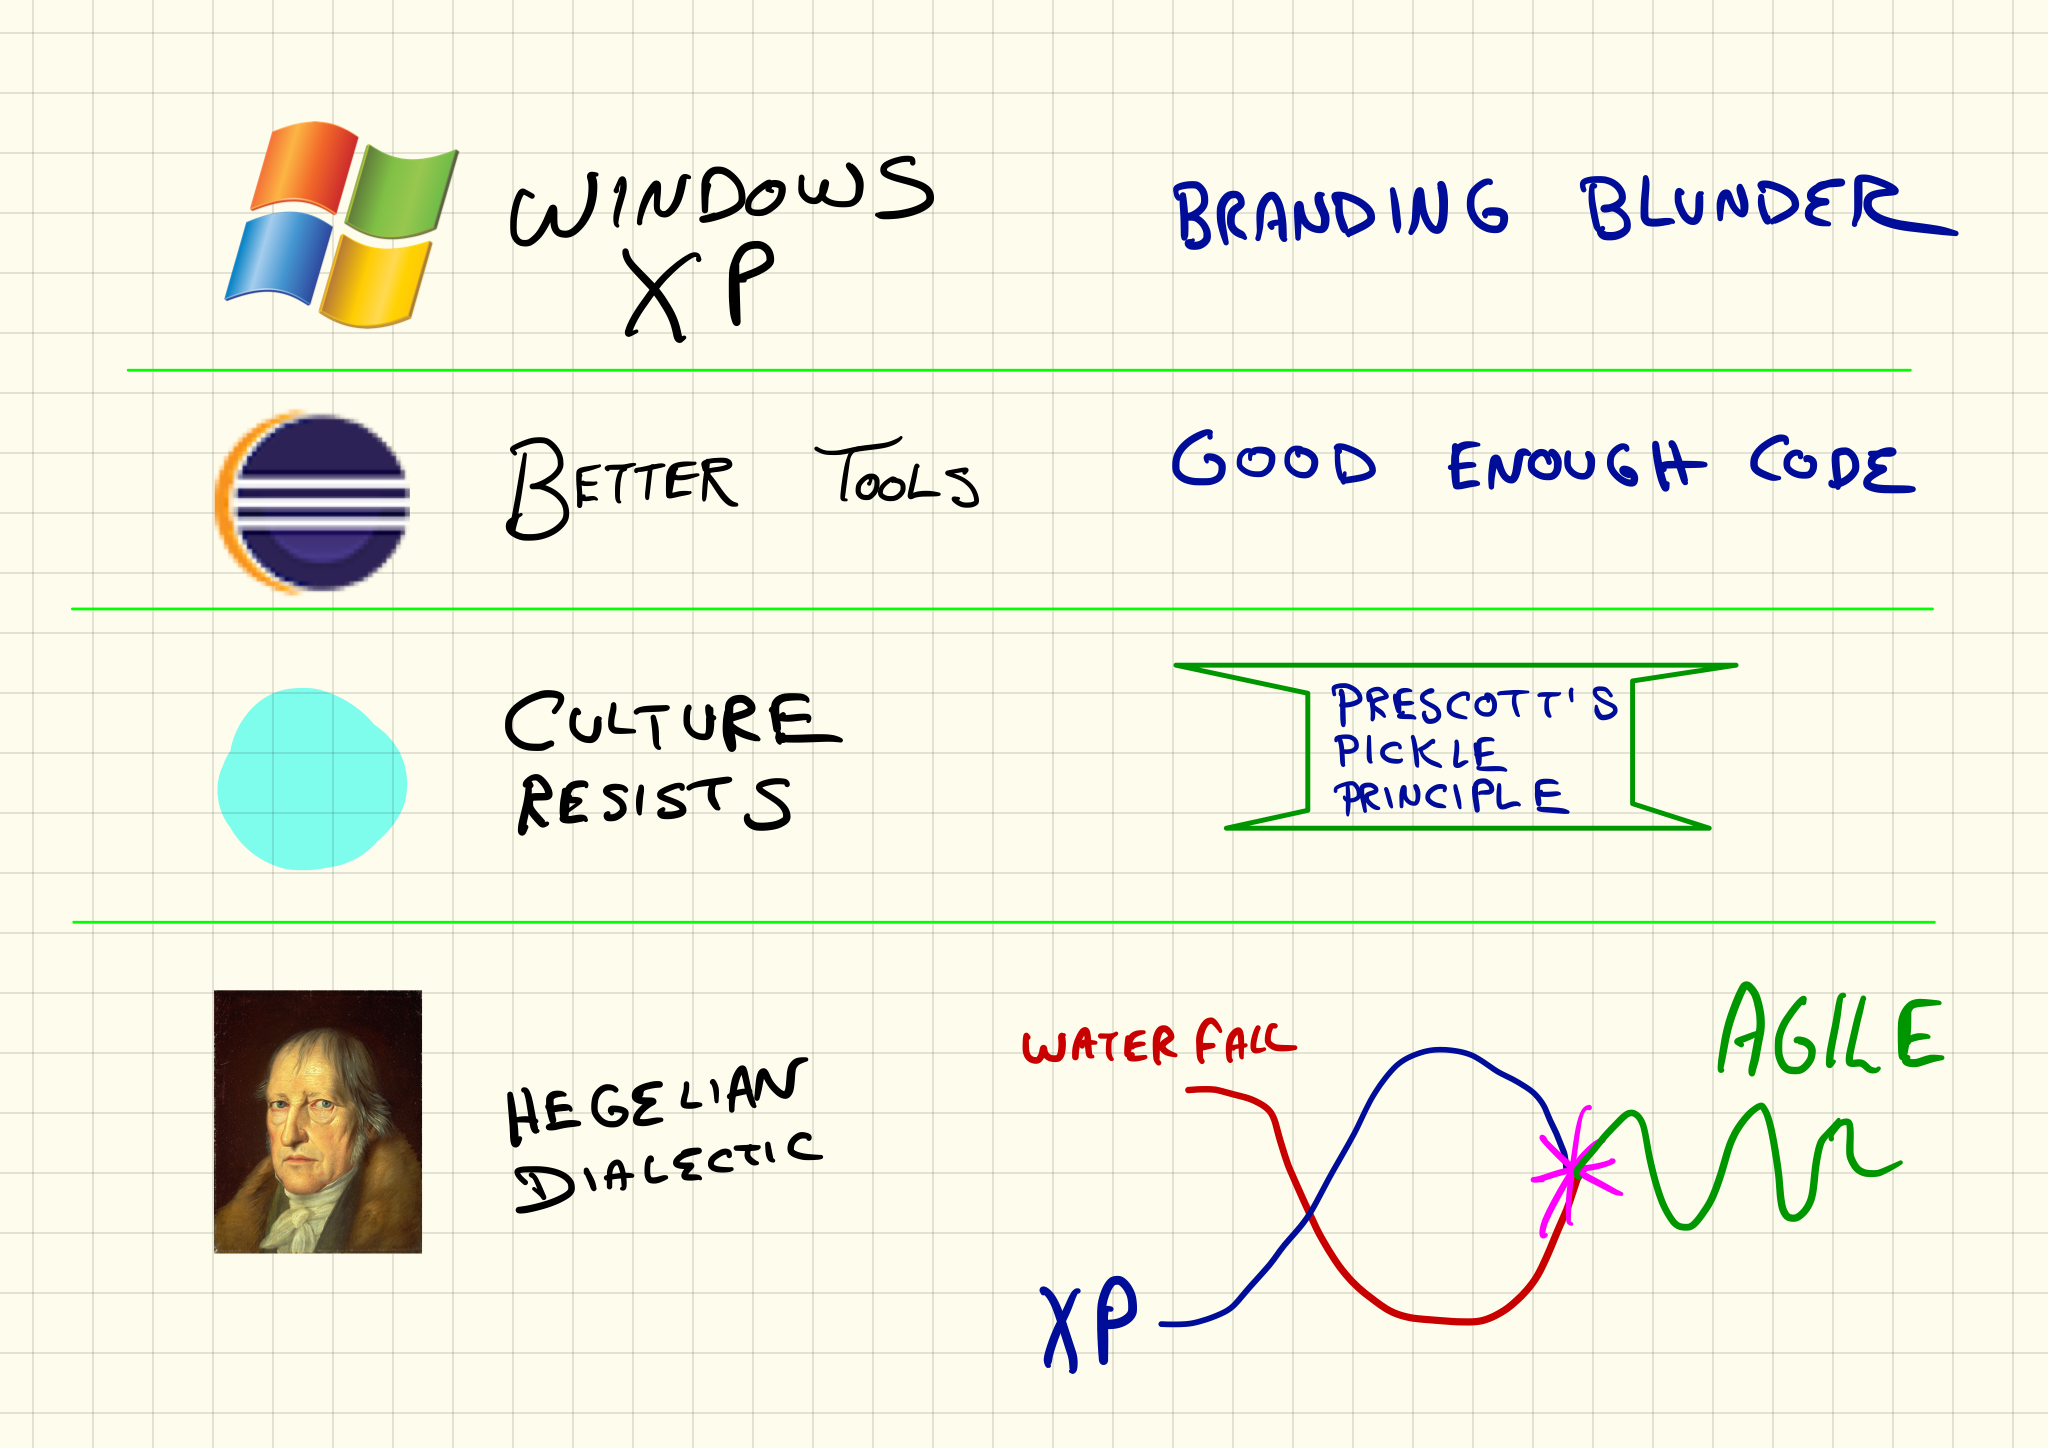 WINDOWS
XP
BRANDING BLUNDER
BETTER TOOLS
GOOD ENOUGH CODE
CULTURE
RESISTS
PRESCOTT'S
PICKLE
PRINCIPLE
HEGELIAN
DIALECTIC
WATERFALL
AGILE
XP